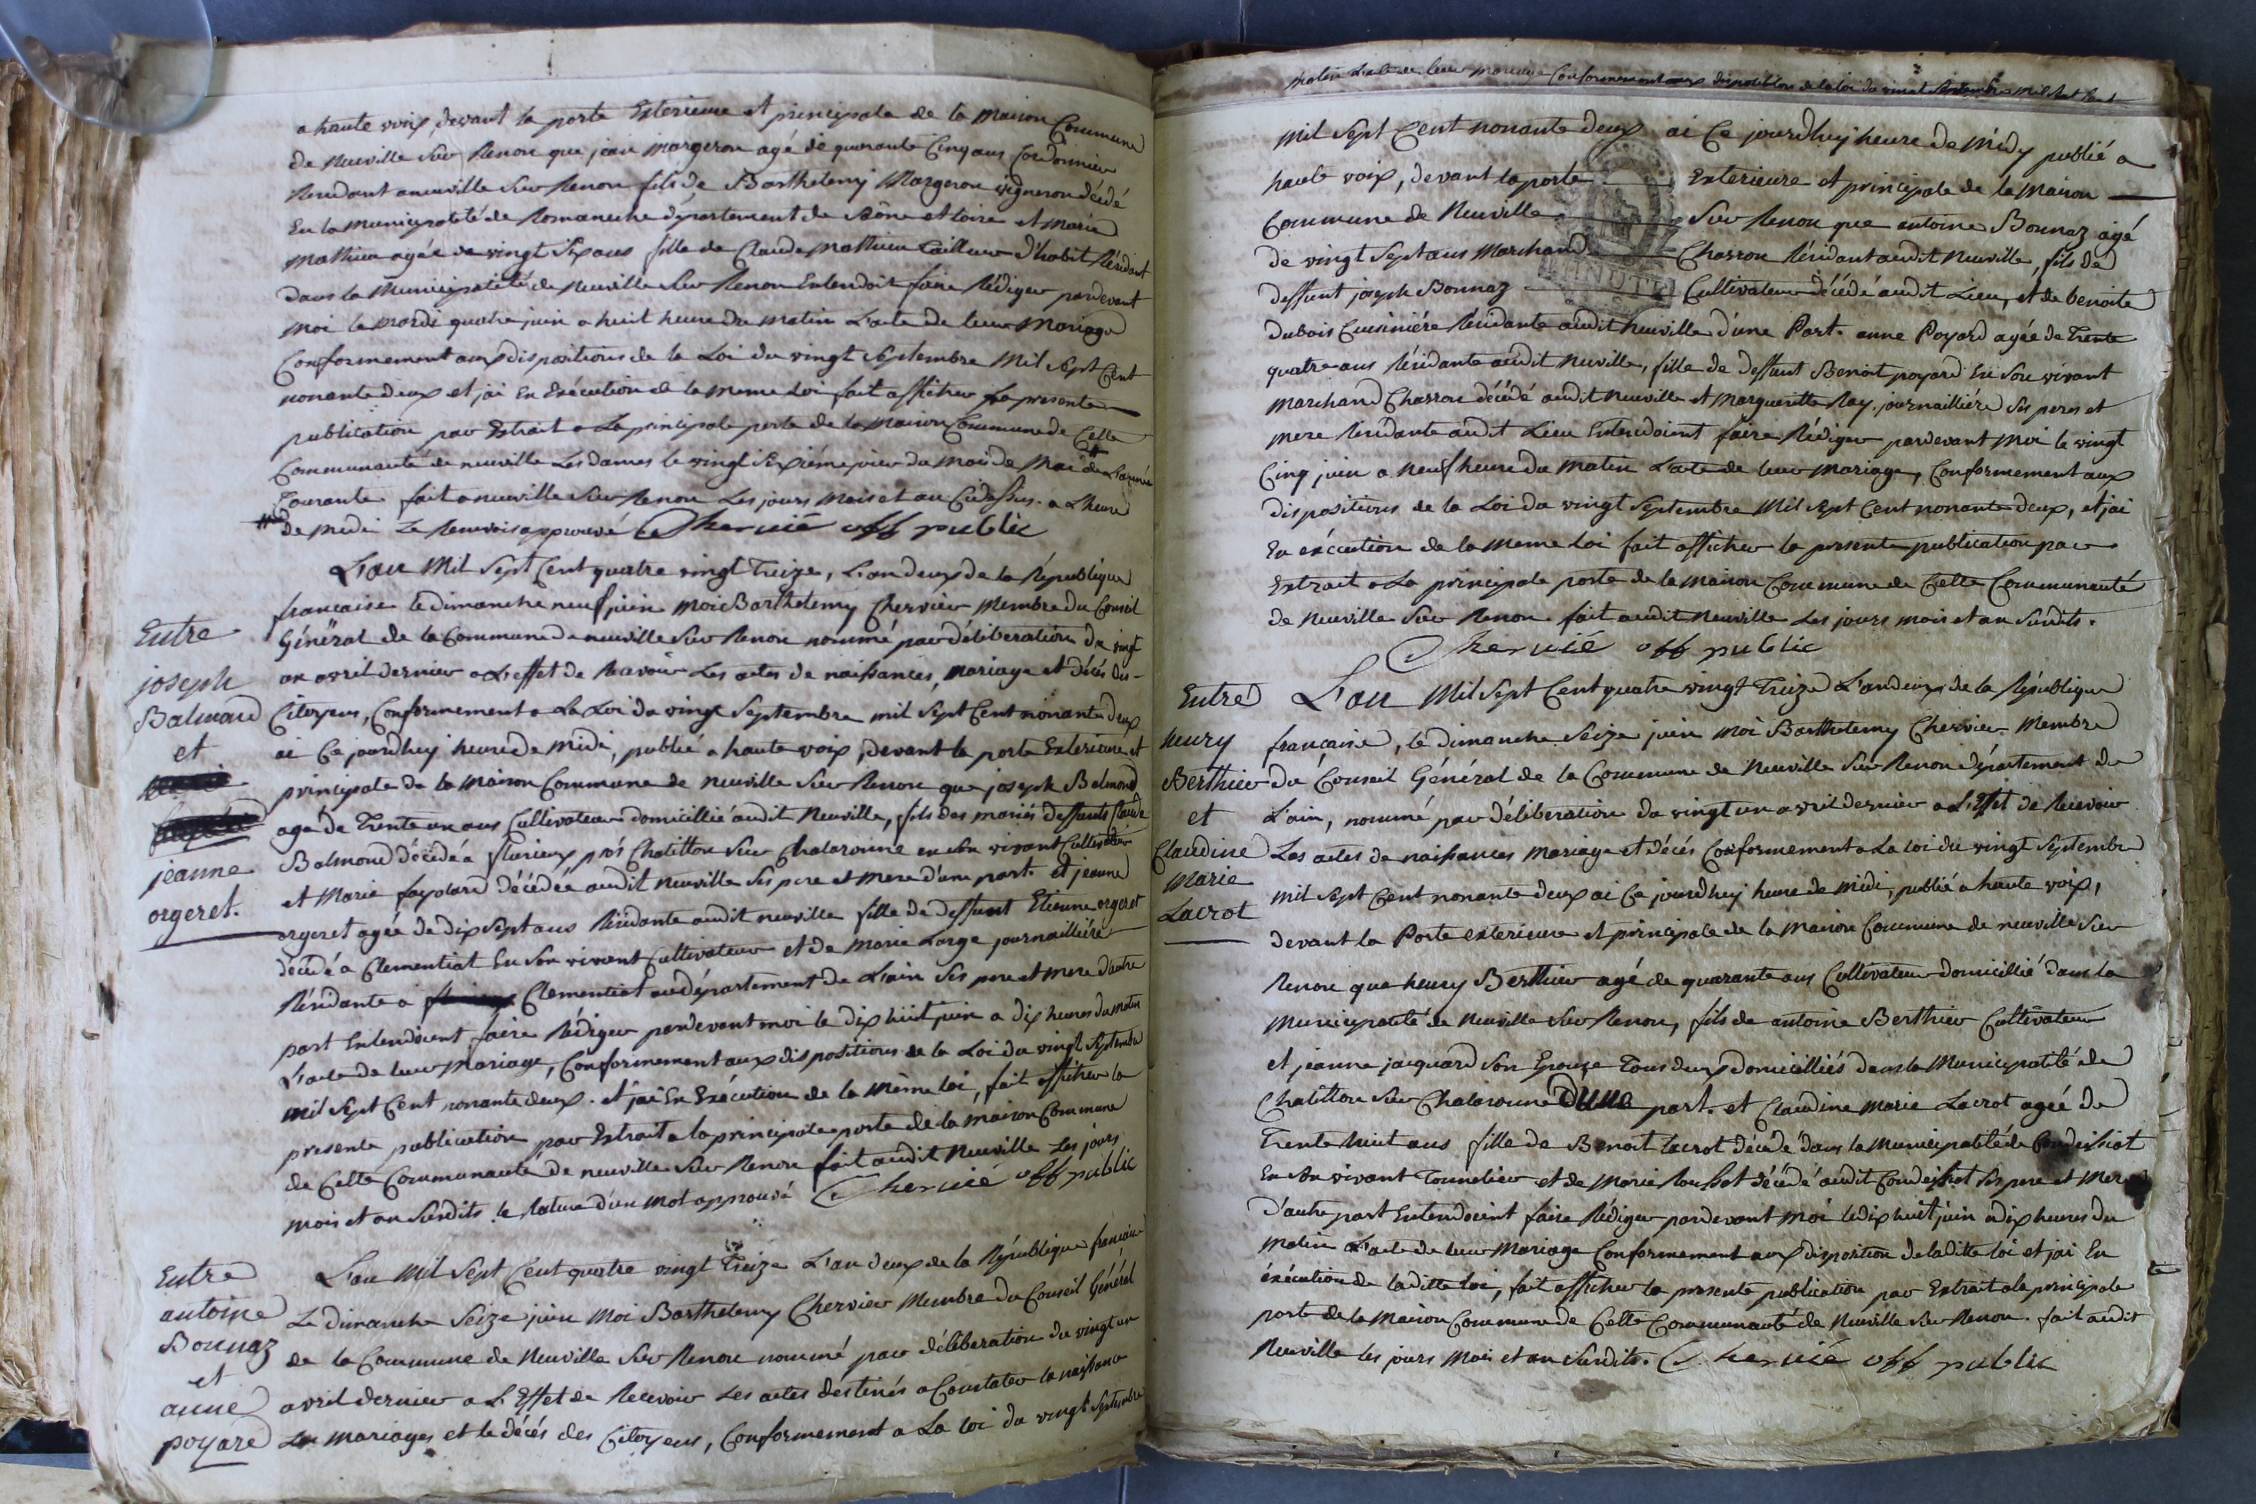 a haute voix, devant la porte Exterieure et principale de la Maison Commune
de Neuville Sur Renon que jean Margeron agé de quarante Cinq ans Cordonnier
Résidant a neuville Sur Renon fils de Barthelemy Margeron vigneron décédé
En la Municipalité de Romaneche département de Saône et Loire et Marie
Mathieu agée de vingt Six ans fille de Claude Mathieu Tailleur d'habit Résidant
dans la Municipalité de Neuville Sur Renon Entendoit faire Rédiger pardevant
Moi le mardi quatre juin a huit heure du matin L'acte de leur Mariage
Conformement aux dispositions de la Loi du vingt Septembre Mil Sept Cent
nonante deux et jai En Exécution de la Meme Loi fait afficher la presente
publication par Extrait a La principale porte de la Maison Commune de Cette
Communauté de neuville Les dames le vingt Sixiéme jour du Mois de Mai de L'année
Courante. fait a neuville Sur Renon Les jours Mois et an Cidessus. a L'heure
de Midi Le Renvois approuvé Chervié off public
L'an Mil Sept Cent quatre vingt Treize, L'an deux de la République
francaise le dimanche neuf juin Moi Barthelemy Chervier Membre du Conseil
Entre
Général de la Commune de neuville Sur Renon nommé par déliberation du vingt
joseph
un avril dernier a L'effet de Recevoir Les actes de naissances, mariage et décés des
Balmond
Citoyens, Conformement a La Loi du vingt Septembre mil Sept Cent nonante deux
et
ai Ce jourdhuy heure de Midi, publié a haute voix, devant la porte Exterieure et
principale de la Maison Commune de Neuville Sur Renon que joseph Balmond
agé de Trente un ans Cultivateur domicillié audit Neuville, fils des mariés deffunts Claude
jeanne
Balmond décédé a flurieux prés Chatillon Sur Chalaronne en son vivant Cultivateur
orgeret.
et Marie fayolard décédée audit Neuville Ses pere et mere d'une part. et jeanne
orgeret agée de dix Sept ans Résidante audit neuville fille de deffunt Etienne orgeret
décédé a Clementiat En Son vivant Cultivateur et de Marie Large journailliére
Résidante a Clementiat au département de L'ain Ses pere et mere d'autre
part Entendoient faire Rédiger pardevant moi le dix huit juin a dix heures du Matin
L'acte de leur Mariage, Conformement aux dispositions de la Loi du vingt Septembre
mil Sept Cent nonante deux. et jai En Exécution de la Même Loi, fait afficher la
presente publication par Extrait a la principale porte de la Maison Commune
de Cette Communauté de neuville Sur Renon fait audit Neuville Les jours
Mois et an Susdits. le Rature d'un Mot approuvé Chervié off public
Entre
L'an Mil Sept Cent quatre vingt Treize L'an deux de la République francaise
antoine
Le dimanche Seize juin Moi Barthelemy Chervier Membre du Conseil Général
Bonnaz
de la Commune de Neuville Sur Renon nommé par déliberation du vingt un
et
anne
avril dernier a L'Effet de Recevoir Les actes destinés a Constater la naissance
poyard
Les Mariages et le décés des Citoyens, Conformement a La Loi du vingt Septembre
matin L'acte de leur Mariage Conformement aux dispositions de la Loi du vingt Septembre Mil Sept Cent
Mil Sept Cent nonante deux ai Ce jourdhuy heure de Midy publié a
haute voix, devant la porte Exterieure et principale de la Maison
Commune de Neuville Sur Renon que antoine Bonnaz agé
de vingt Sept ans Marchand Charron Résidant audit Neuville, fils de
deffunt joseph Bonnaz Cultivateur décédé audit Lieu, et de benoite
dubois Cuisiniére Résidante audit Neuville d'une Part. anne Poyard agée de Trente
quatre ans Résidante audit Neuville, fille de deffunt Benoit poyard En Son vivant
Marchand Charron décédé audit Neuville et Margueritte Ray, journailliére Ses peres et
mere Résidante audit Lieu Entendoient faire Rédiger pardevant Moi le vingt
Cinq juin a Neuf heure du Matin L'acte de leur Mariage, Conformement aux
dispositions de la Loi du vingt Septembre Mil Sept Cent nonante deux, et jai
En exécution de la Meme Loi fait afficher la presente publication par
Extrait a La principale porte de la Maison Commune de Cette Communauté
de Neuville Sur Renon. fait audit Neuville Les jours mois et an Susdits.
Chervié off public
Entre
L'an Mil Sept Cent quatre vingt Treize L'an deux de la République
henry
française, le dimanche Seize juin Moi Barthelemy Chervier Membre
Berthier
du Conseil Général de la Commune de Neuville Sur Renon département de
et
L'ain, nommé par déliberation du vingt un avril dernier a L'Effet de Recevoir
Claudine
Les actes de naissances Mariage et décés Conformement a La Loi du vingt Septembre
Marie
mil Sept Cent nonante deux ai Ce jourdhuy heure de Midi, publié a haute voix,
Lacrot
devant la Porte exterieure et principale de la Maison Commune de neuville Sur
Renon que henry Berthier agé de quarante ans Cultivateur domicillié dans la
Municipalité de Neuville Sur Renon, fils de antoine Berthier Cultivateur
et jeanne jacquard Son Epouse Tous deux domicilliés dans la Municipalité de
Chatillon Sur Chalaronne D'une part. et Claudine Marie Lacrot agée de
Trente huit ans fille de Benoit Lacrot décédé dans la Municipalité de Condeissiat
En Son vivant Tonnelier et de Marie décédé audit Condeissiat Ses pere et Mere
D'autre part Entendoient faire Rédiger pardevant Moi le dix huit juin a dix heures du
Matin L'acte de leur Mariage Conformement aux disposition de la ditte Loi et jai En
éxécution de la ditte Loi, fait afficher la presente publication par Extrait a la principale
porte de la Maison Commune de Cette Communauté de Neuville Sur Renon. fait audit
Neuville les jours Mois et an Susdits. Chervié off public